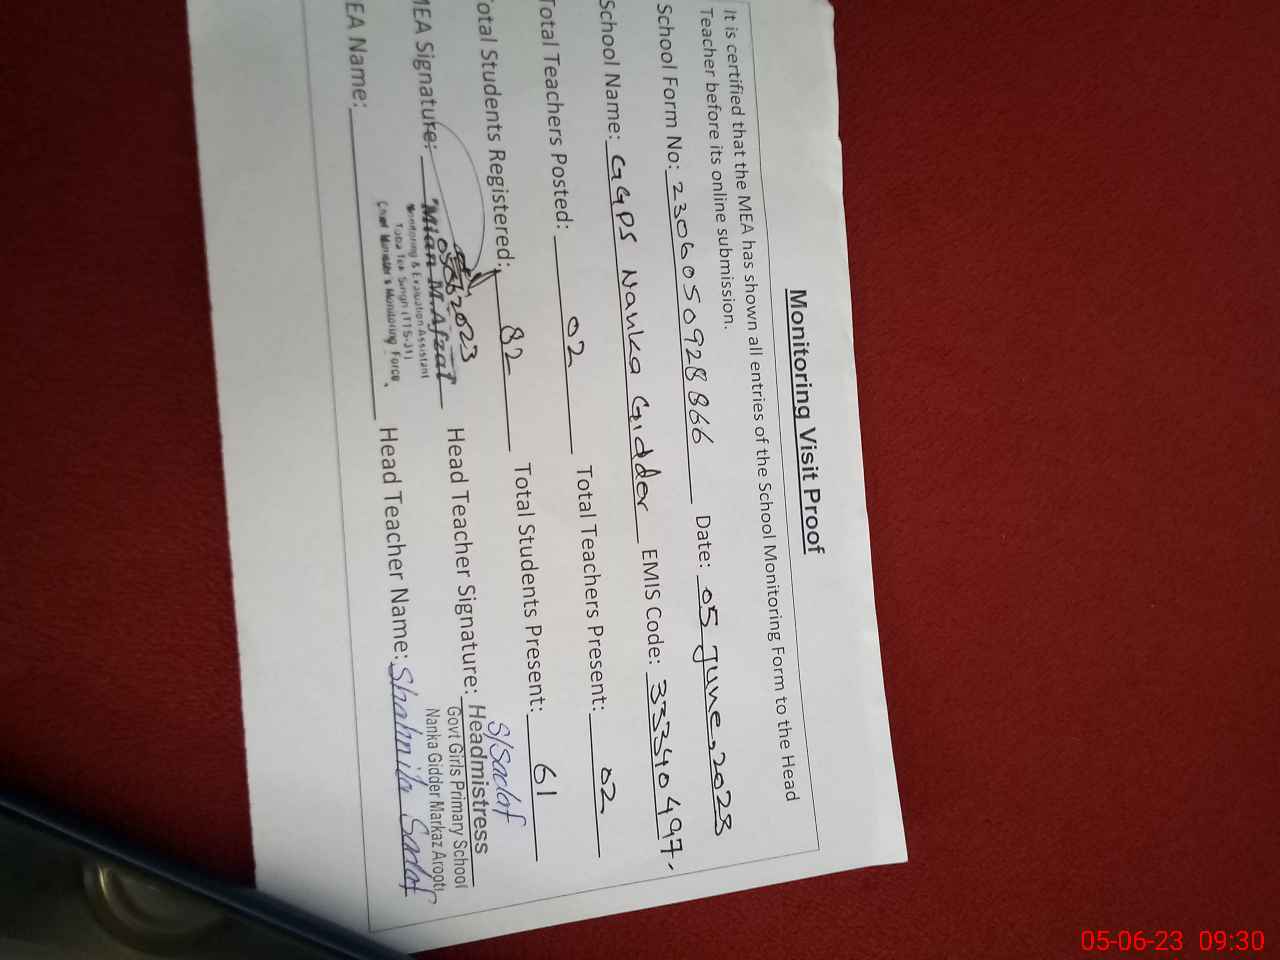 Monitoring Visit Proof
It is certified that the MEA has shown all entries of the School Monitoring Form to the Head
Teacher before its online submission.
School Form No: 2306050928866 Date: 05 June, 2023
School Name: GGPS Nanka Gidder EMIS Code: 33340497
Total Teachers Posted: 02 Total Teachers Present: 02
otal Students Registered: 82 Total Students Present: 61
MEA Signature: Head Teacher Signature: S/Sadaf
05062023
Mian M. Afzal
Monitoring & Evaluation Assistant
Toba Tek Singh (TTS-31)
Chief Minister's Monitoring Force
Headmistress
Govt Girls Primary School
Nanka Gidder Markaz Arooti
EA Name: Head Teacher Name: Shahnila Sadaf
05-06-23 09:30